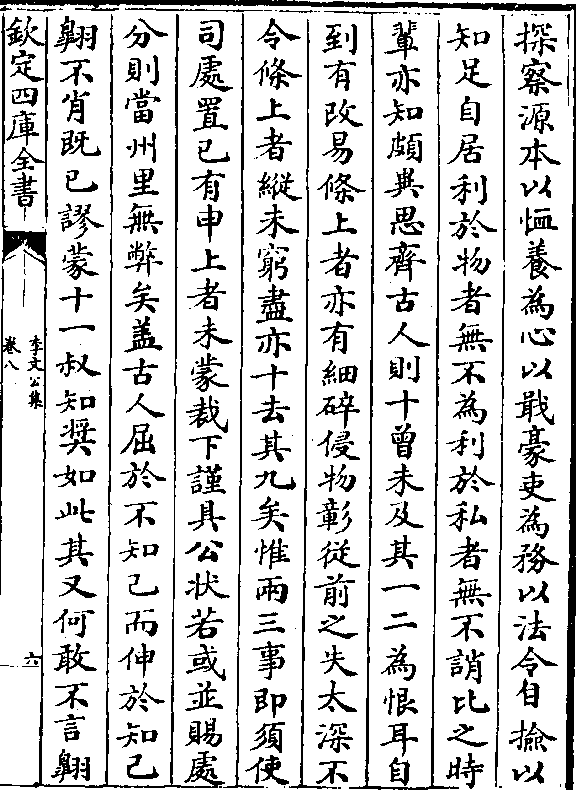 探察源本以恤養為心以戢豪吏為務以法令自撿以
知足自居利於物者無不為利於私者無不誚比之時
輩亦知頗異思齊古人則十曾未及其一二為恨耳自
到有改易條上者亦有細碎侵物彰從前之失太深不
令條上者縱未窮盡亦十去其九矣惟兩三事即須使
司處置已有申上者未蒙裁下謹具公狀若或並賜處
分則當州里無弊矣盖古人屈於不知己而伸於知己
翺不肖既已謬蒙十一叔知奨如此其又何敢不言翺
欽定四庫全書
李文公集
卷八
六